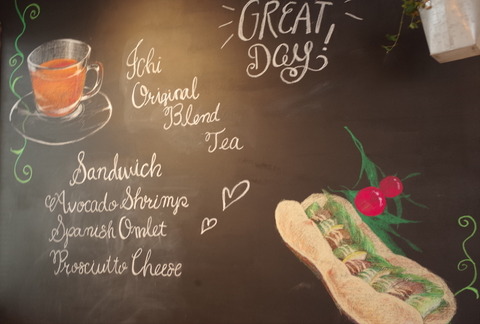 GREAT
DAY!
Ichi
Original
Blend
Tea
Sandwich
Avocado Shrimp
Spanish Omlet
Prosciutto Cheese